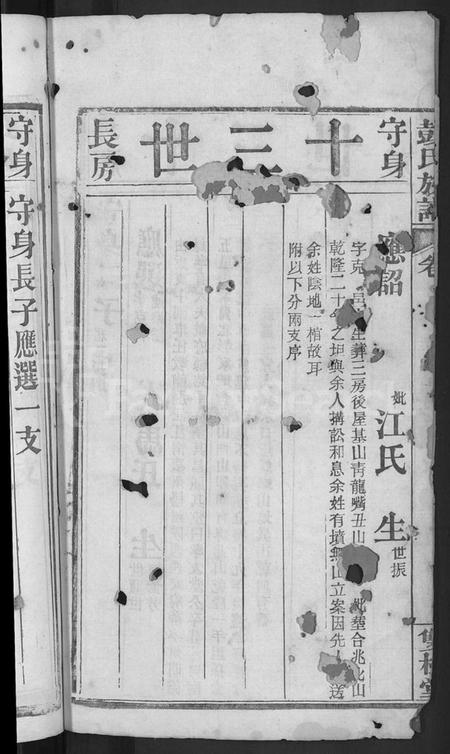 彭氏族譜
卷
雙桂堂
守身
十三世
長房
應韶
妣江氏
生世振
字克 邑 生葬三房後屋基山青龍嘴丑山 此塋合兆此山
乾隆二十 年之坤與余人搆訟和息余姓有墳無山立案因先 送
余姓陰地一棺故耳
附以下分兩支序
守身
守身長子應選一支